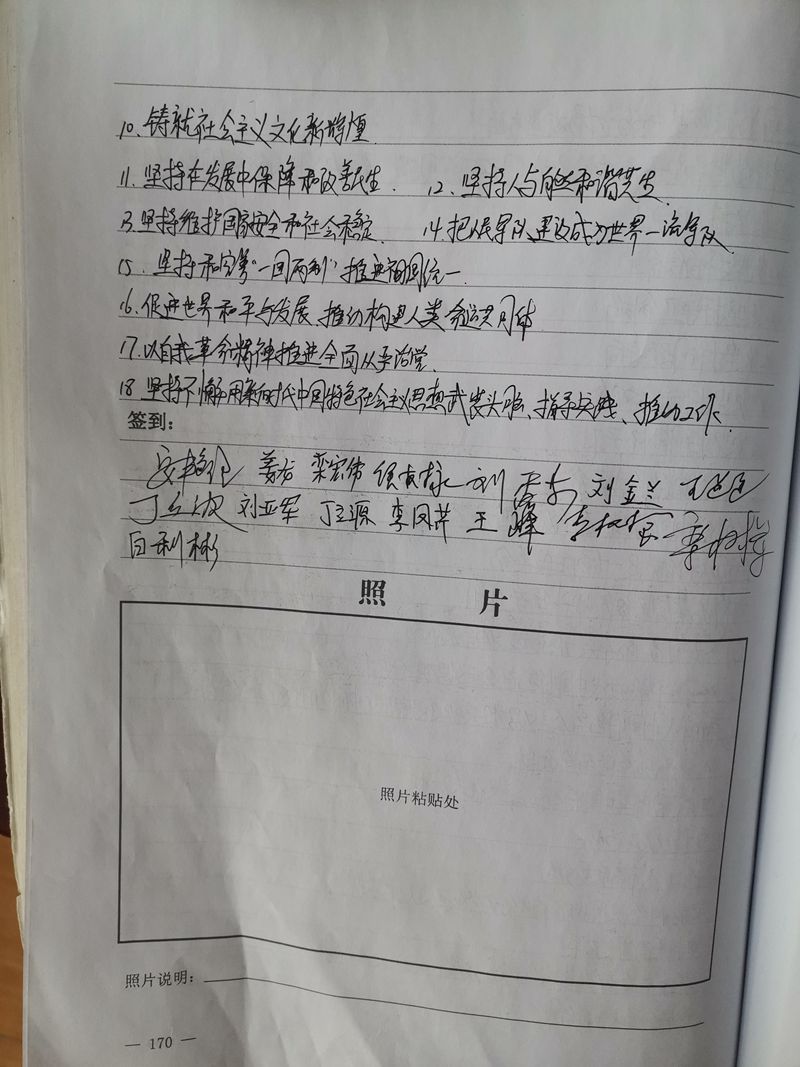 10、铸就社会主义文化新辉煌
11、坚持在发展中保障和改善民生. 12、坚持人与自然和谐共生.
13、坚持维护国家安全和社会稳定. 14、把人民军队建设成为世界一流军队
15、坚持和完善“一国两制”推进祖国统一
16、促进世界和平与发展、推动构建人类命运共同体
17、以自我革命精神推进全面从严治党.
18、坚持不懈用新时代中国特色社会主义思想武装头脑、指导实践、推动工作.
签到:
姜龙 栾宏伟 刘金兰
刘亚军 丁立源 李凤芹 王峰
白利彬
照 片
照片粘贴处
照片说明:
— 170 —